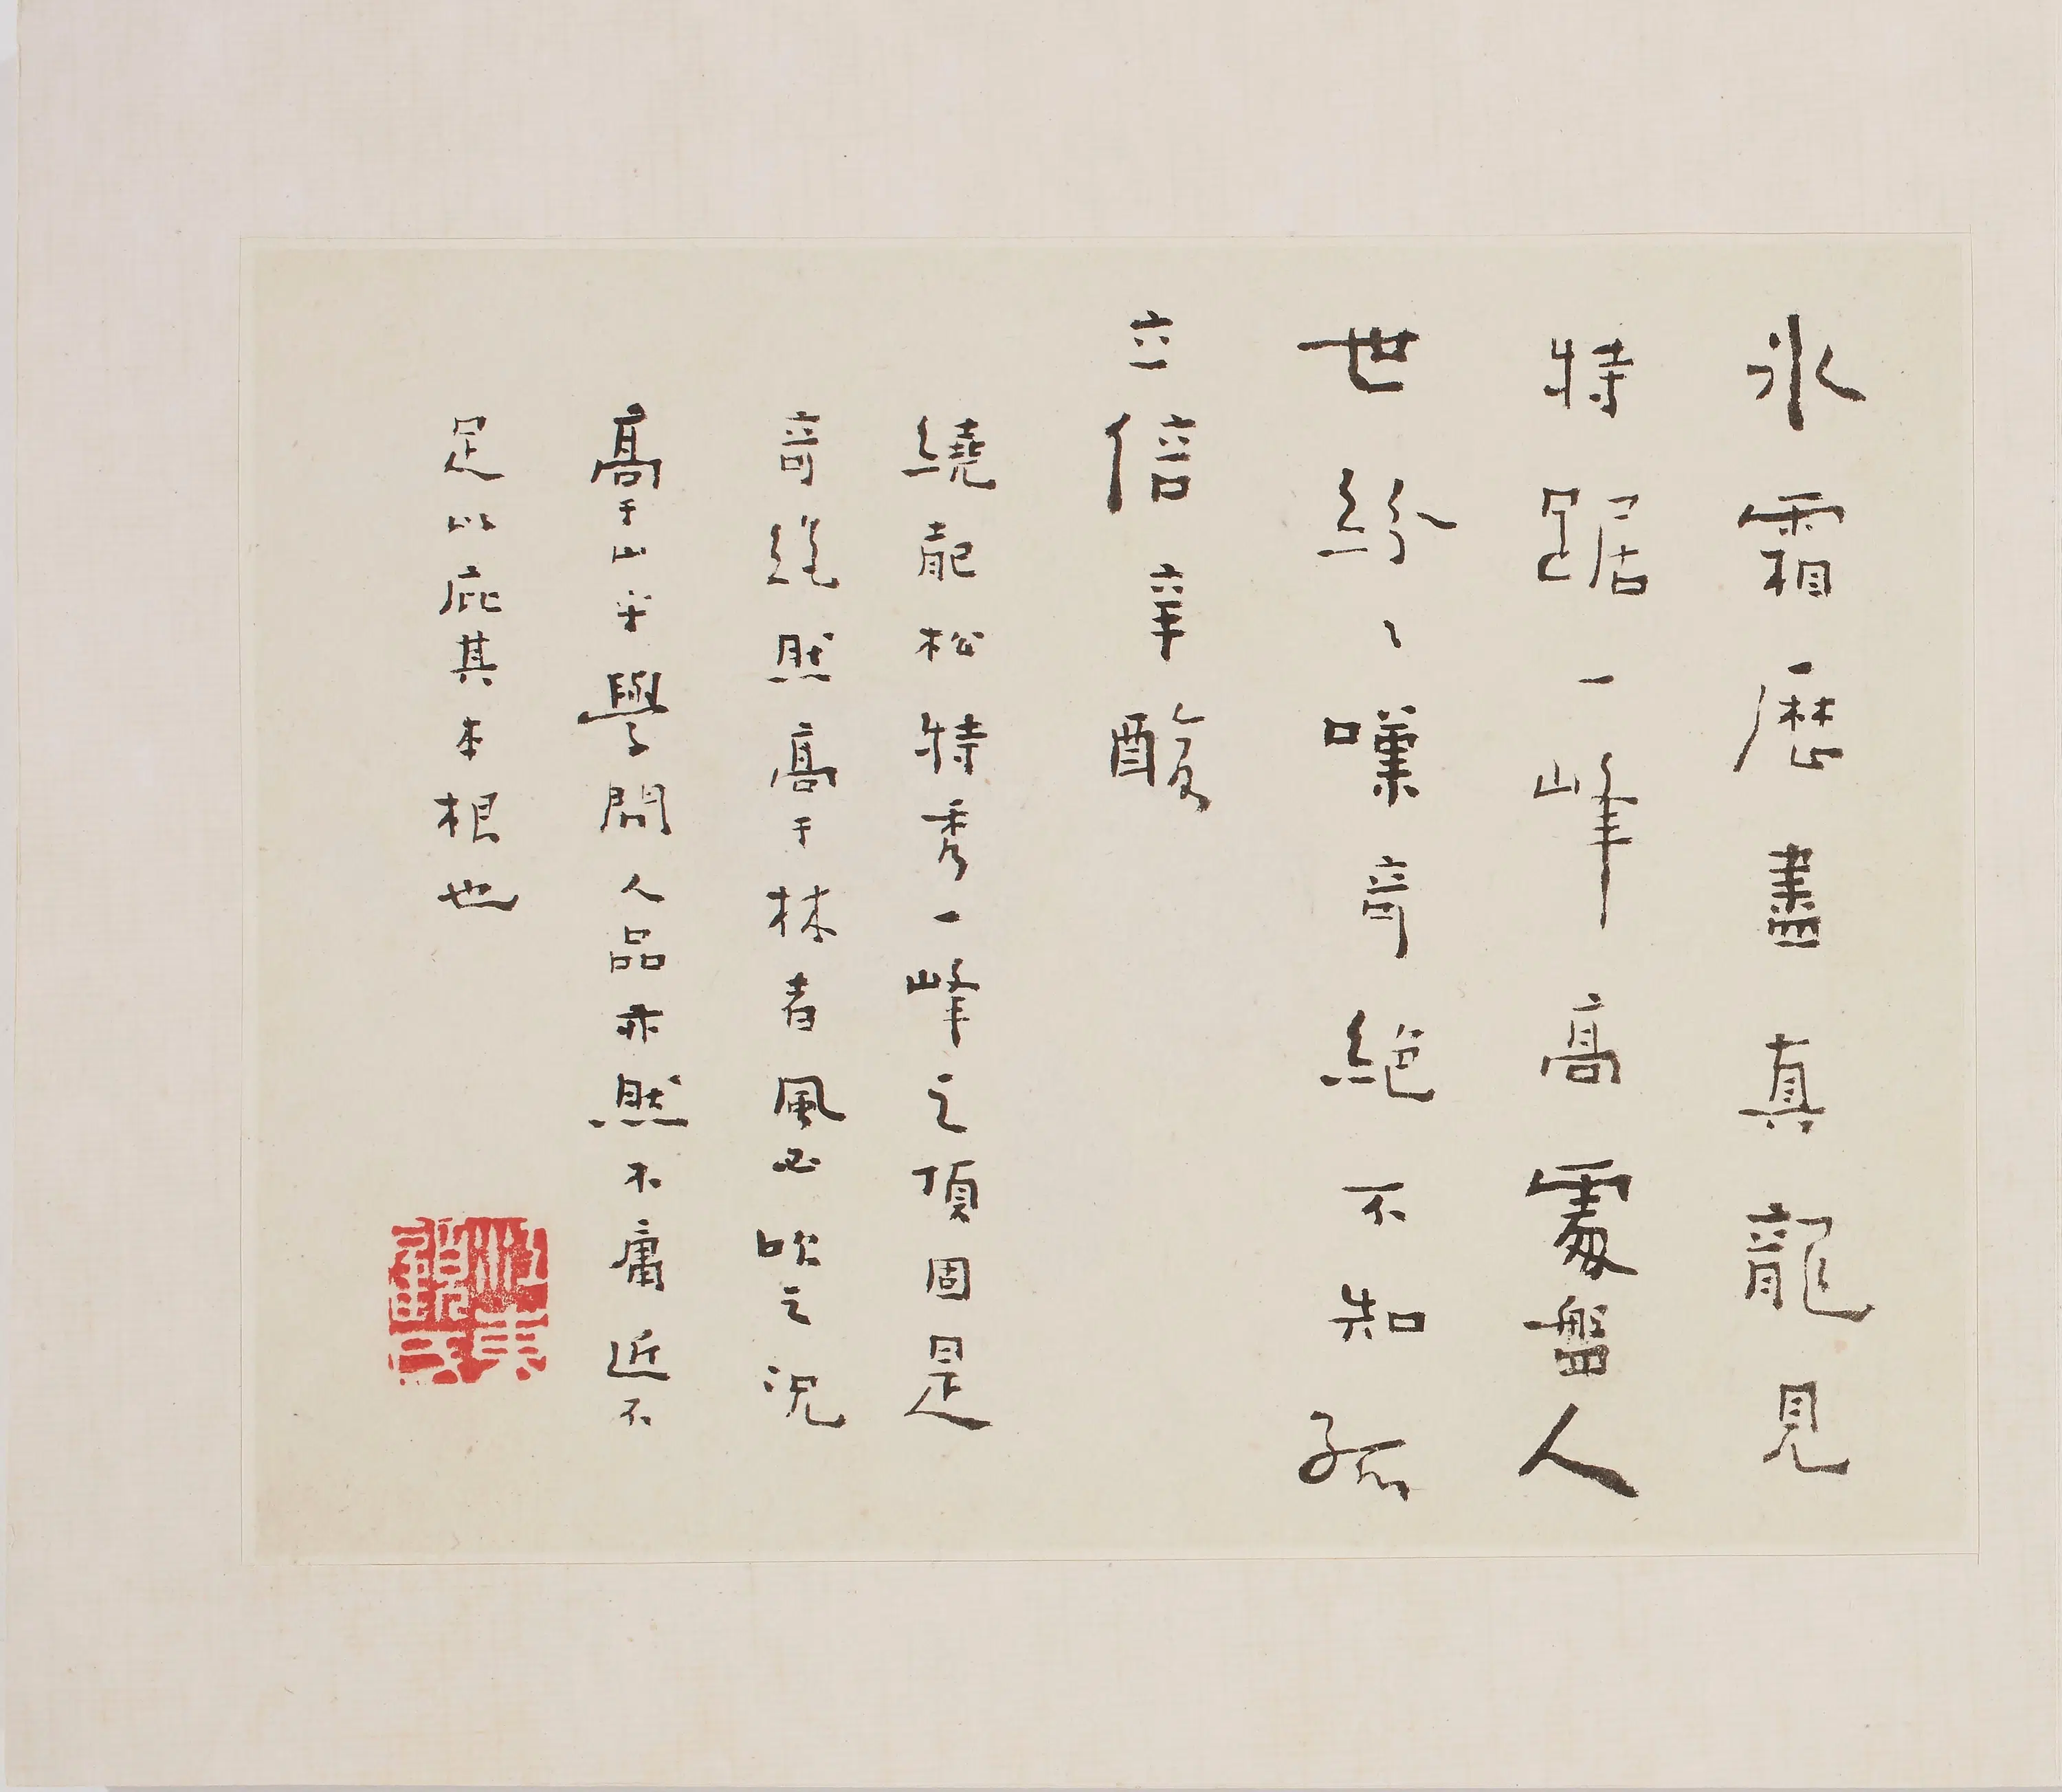 氷霜歷盡真龍見
特踞一峰高處盤人
世紛〻嘆奇絕不知孤
立信辛酸
繞龍松特秀一峰之頂固是
奇絕然高于林者風必吹之況
高于山乎學問人品亦然不庸近不
足以庇其本根也